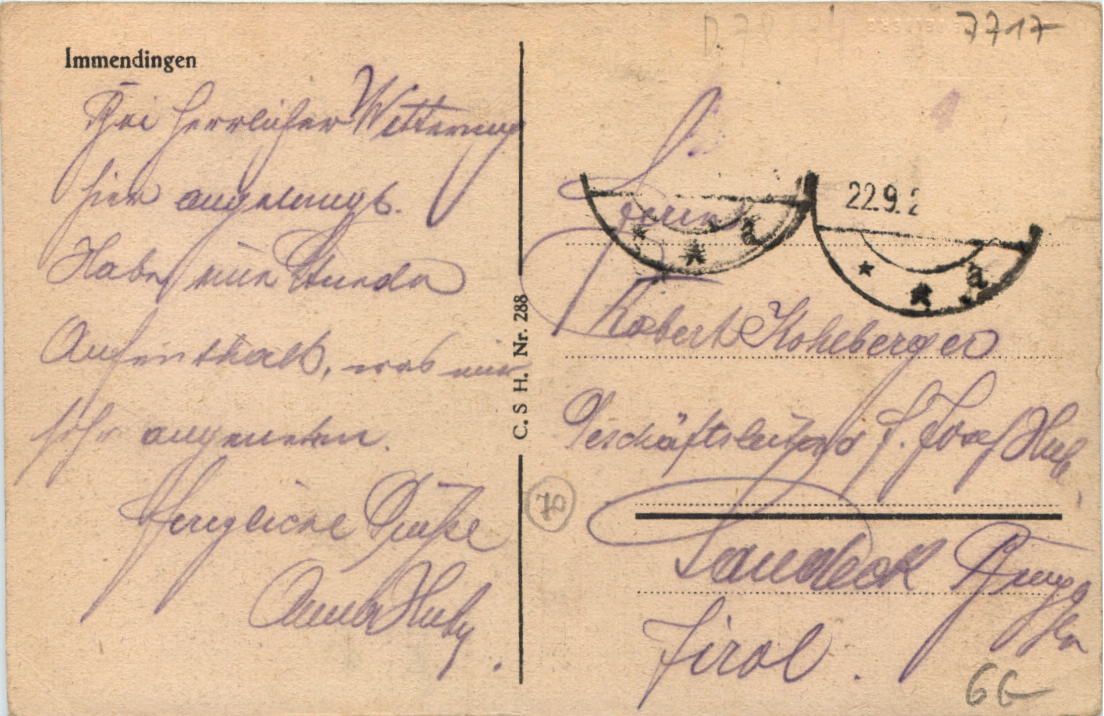 Immendingen
Bei herrlicher Witterung
hier angelangt.
Habe eine Stunde
Aufenthalt, was mir
sehr angenehm.
Herzliche Grüße
Anna Huby.
C. S. H. Nr. 288
7717
22.9.2
a
a
Herrn
Robert Koheberger
Geschäftsleiter d. F. Josef Hub.
70
Landeck
Tirol.